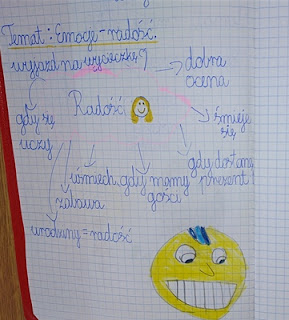 Temat: Emocje - radość.
wyjazd na wycieczkę?
dobra
ocena
Radość
gdy się
uczy
śmieje
się
gdy dostanę
prezent
uśmiech
gdy mamy
gości
zabawa
urodziny = radość